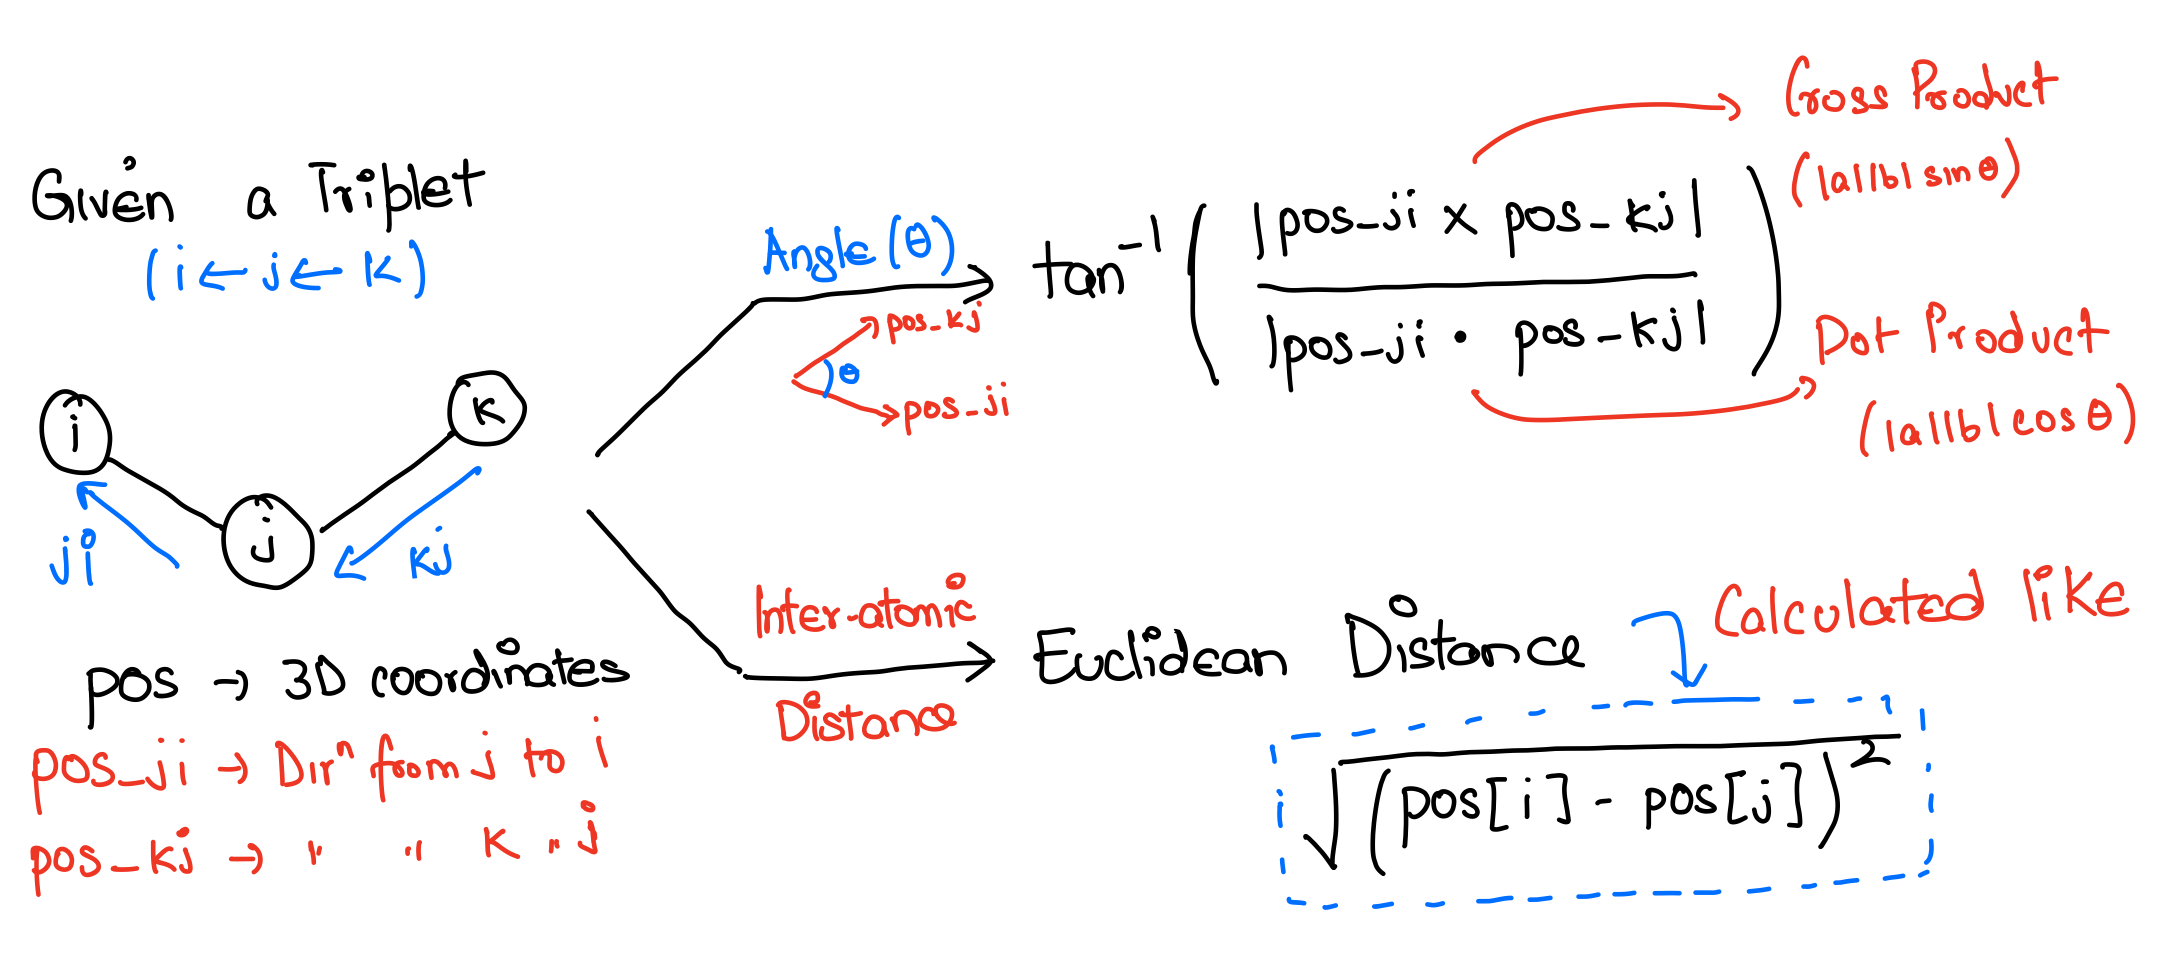 Given a Triplet
(i ← j ← k)
i
j
k
ji
kj
pos → 3D coordinates
pos_ji → Dirⁿ from j to i
pos_kj → " " k " j
Angle (θ)
pos_kj
θ
pos_ji
tan⁻¹ ( |pos_ji × pos_kj| / |pos_ji · pos_kj| )
Cross Product
(|a||b| sin θ)
Dot Product
(|a||b| cos θ)
Inter-atomic
Distance
Euclidean Distance
Calculated like
√(pos[i] - pos[j])²